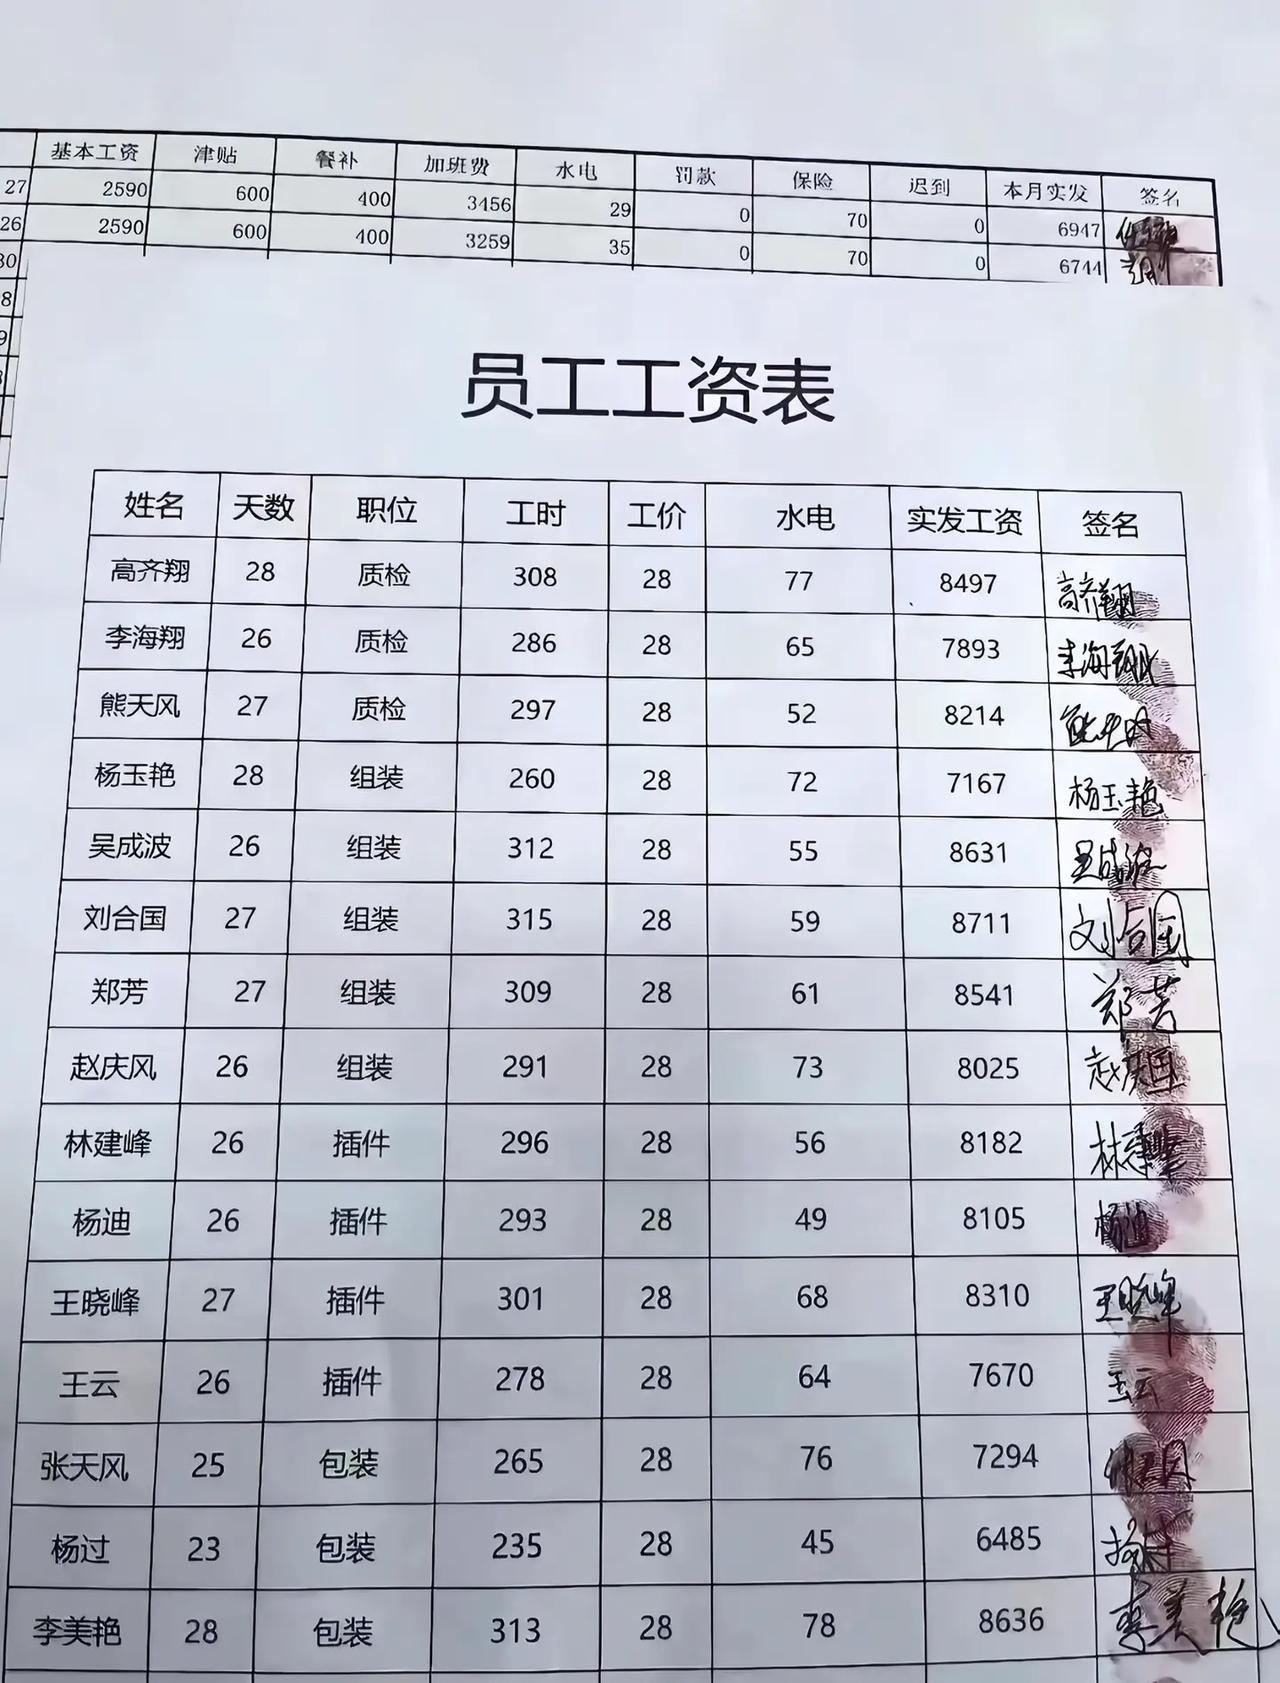 基本工资 津贴 餐补 加班费 水电 罚款 保险 迟到 本月实发 签名
27 2590 600 400 3456 29 0 70 0 6947
26 2590 600 400 3259 35 0 70 0 6744
员工工资表
姓名 天数 职位 工时 工价 水电 实发工资 签名
高齐翔 28 质检 308 28 77 8497 高齐翔
李海翔 26 质检 286 28 65 7893 李海翔
熊天风 27 质检 297 28 52 8214
杨玉艳 28 组装 260 28 72 7167 杨玉艳
吴成波 26 组装 312 28 55 8631
刘合国 27 组装 315 28 59 8711 刘合国
郑芳 27 组装 309 28 61 8541 郑芳
赵庆风 26 组装 291 28 73 8025
林建峰 26 插件 296 28 56 8182
杨迪 26 插件 293 28 49 8105 杨迪
王晓峰 27 插件 301 28 68 8310 王晓峰
王云 26 插件 278 28 64 7670 王云
张天风 25 包装 265 28 76 7294
杨过 23 包装 235 28 45 6485
李美艳 28 包装 313 28 78 8636 李美艳